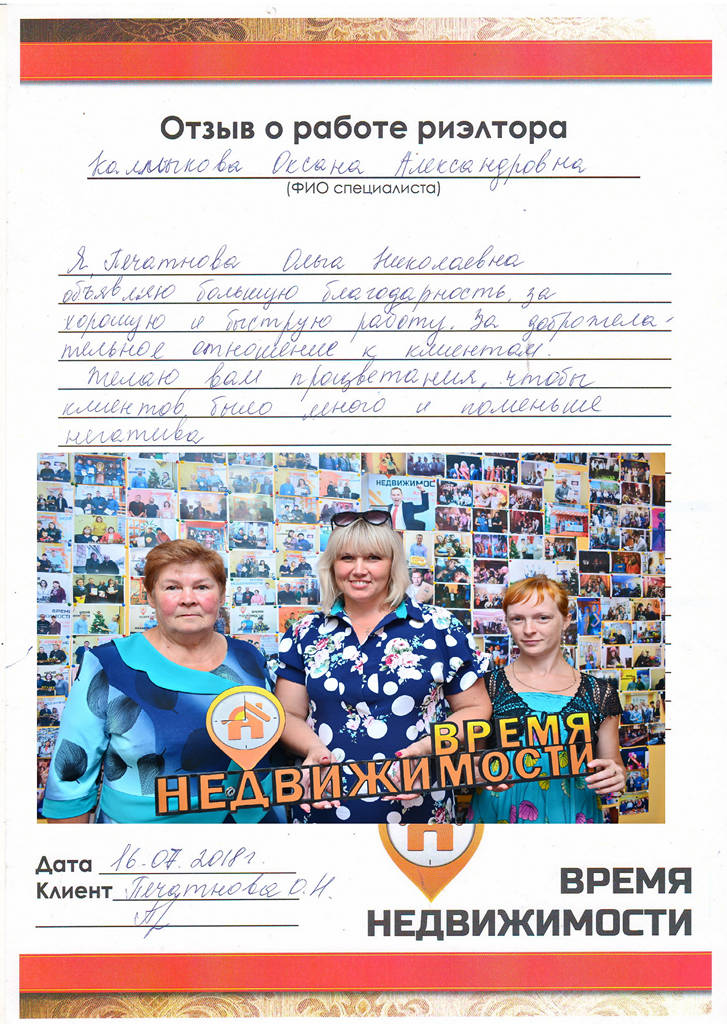 Отзыв о работе риэлтора
Калмыкова Оксана Александровна
(ФИО специалиста)
Я, Печатнова Ольга Николаевна
объявляю большую благодарность, за
хорошую и быструю работу. За доброжела-
тельное отношение к клиентам.
Желаю вам процветания, чтобы
клиентов было много и поменьше
негатива
НЕДВИЖИМОС
ВРЕМЯ
НЕДВИЖИМОСТИ
Дата 16.07.2018г.
Клиент Печатнова О.Н.
ВРЕМЯ
НЕДВИЖИМОСТИ